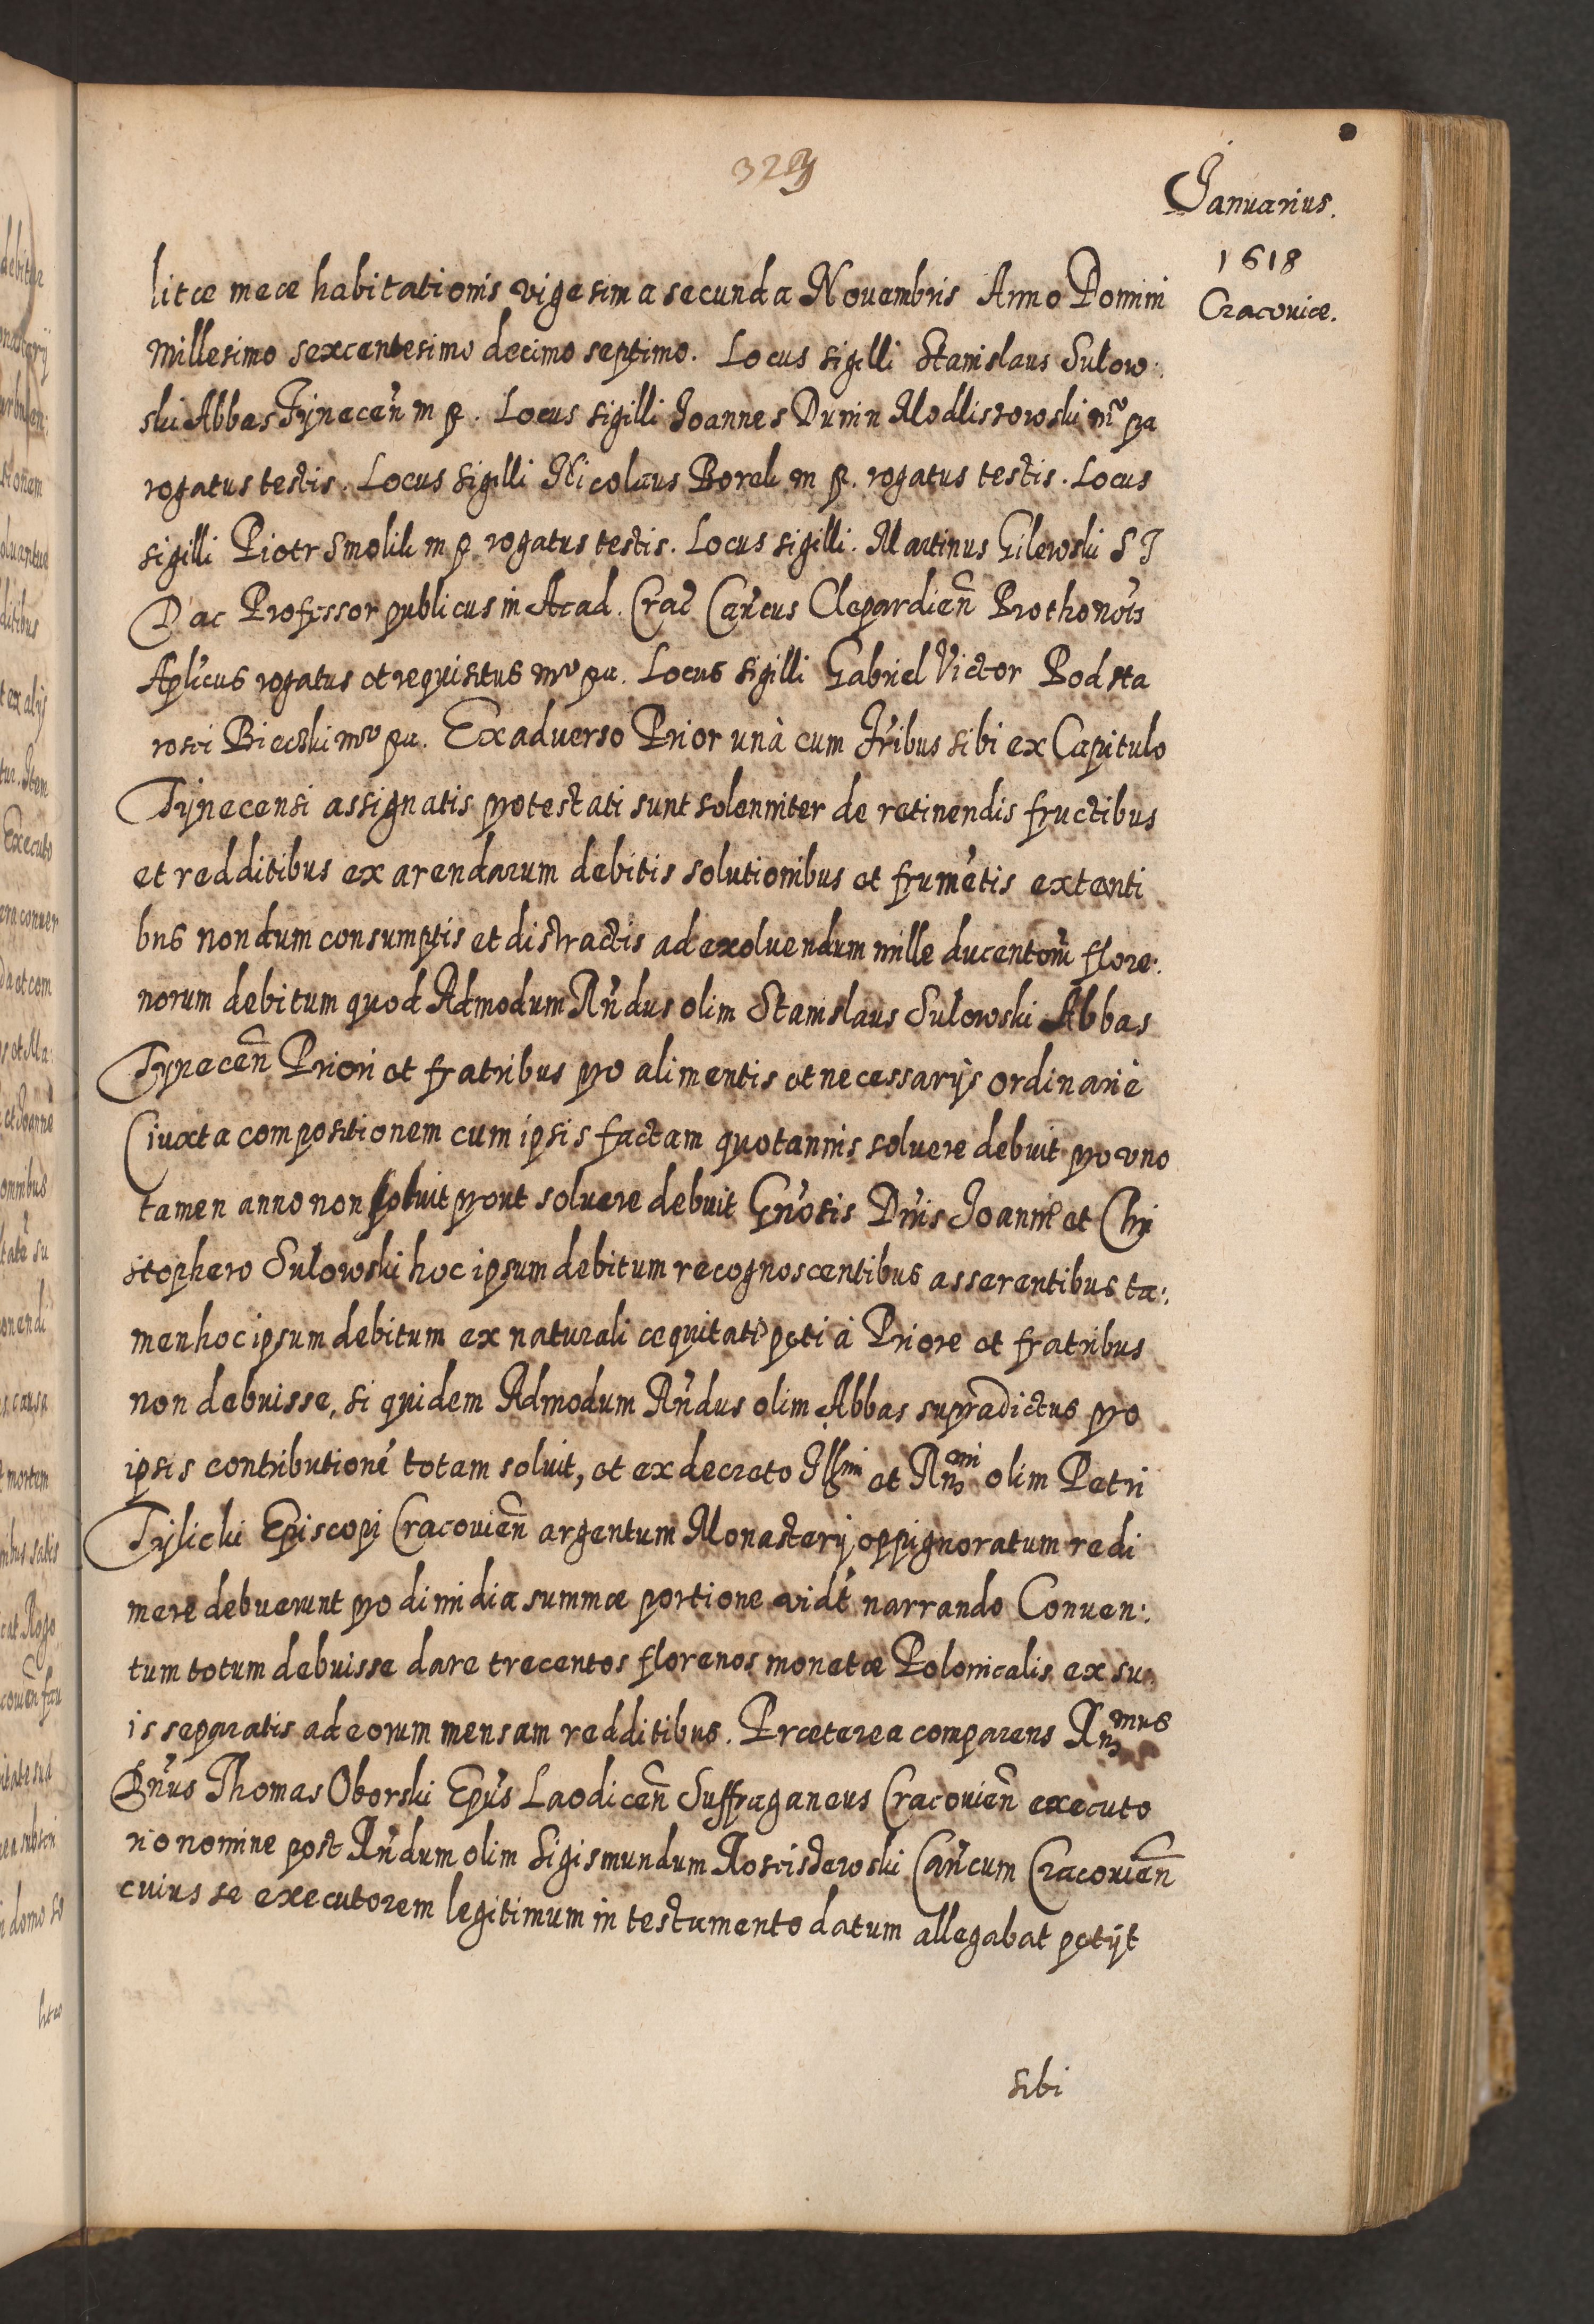 323
Januarius.
1618
Cracoviæ.
litæ meæ habitationis vigesima secunda Nouembris Anno Domini
Millesimo sexcentesimo decimo septimo. Locus sigilli Stanislaus Sulow:
ski Abbas Tynecen̄ m p. Locus sigilli Joannes Dunin Modliszowski mo pa
rogatus testis. Locus sigilli Nicolaus Borek m p. rogatus testis. Locus
sigilli Piotr Smolik m p rogatus testis. Locus sigilli. Martinus Gilewski S T
D ac Professor publicus in Acad. Crac Can̄cus Clepardien̄ Prothonōis
Aplicus rogatus et requisitus mo pa. Locus sigilli Gabriel Victor Podsta
rosci Biecki mo pa. Ex aduerso Prior unà cum fribus sibi ex Capitulo
Tynecensi assignatis protestati sunt solenniter de retinendis fructibus
et redditibus ex arendarum debitis solutionibus et frumētis extanti
bus nondum consumptis et distractis ad exoluendum mille ducentorū flore:
norum debitum quod Admodum Rn̄dus olim Stanislaus Sulowski Abbas
Tynecen̄ Priori et fratribus pro alimentis et necessarijs ordinariè
(iuxta compositionem cum ipsis factam quotannis soluere debuit pro vno
tamen anno non soluit prout soluere debuit Gn̄osis Dn̄is Joanne et Chri
stophero Sulowski hoc ipsum debitum recognoscentibus asserentibus ta:
men hoc ipsum debitum ex naturali æquitate peti à Priore et fratribus
non debuisse, si quidem Admodum Rn̄dus olim Abbas supradictus pro
ipsis contributionē totam soluit, et ex decreto Illmi et Rn̄mi olim Petri
Tylicki Episcopi Cracouien̄ argentum Monasterij oppignoratum redi
mere debuerunt pro dimidia summæ portione vidt narrando Conuen:
tum totum debuisse dare trecentos florenos monetæ Polonicalis ex su:
is separatis ad eorum mensam redditibus. Præterea comparens Rn̄mus
Dn̄us Thomas Oborski Ep̄us Laodicen̄ Suffraganeus Cracouien̄ executo
rio nomine post Rn̄dum olim Sigismundum Rosciszewski Can̄cum Cracouien̄
cuius se executorem legitimum in testamento datum allegabat petijt
sibi